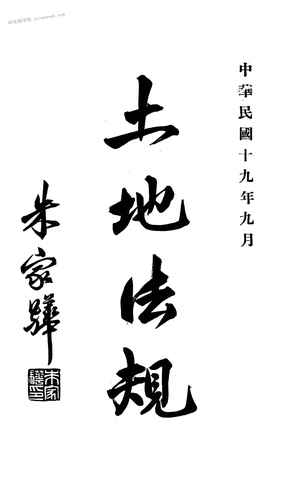 中華民國十九年九月
土地法規
朱家驊